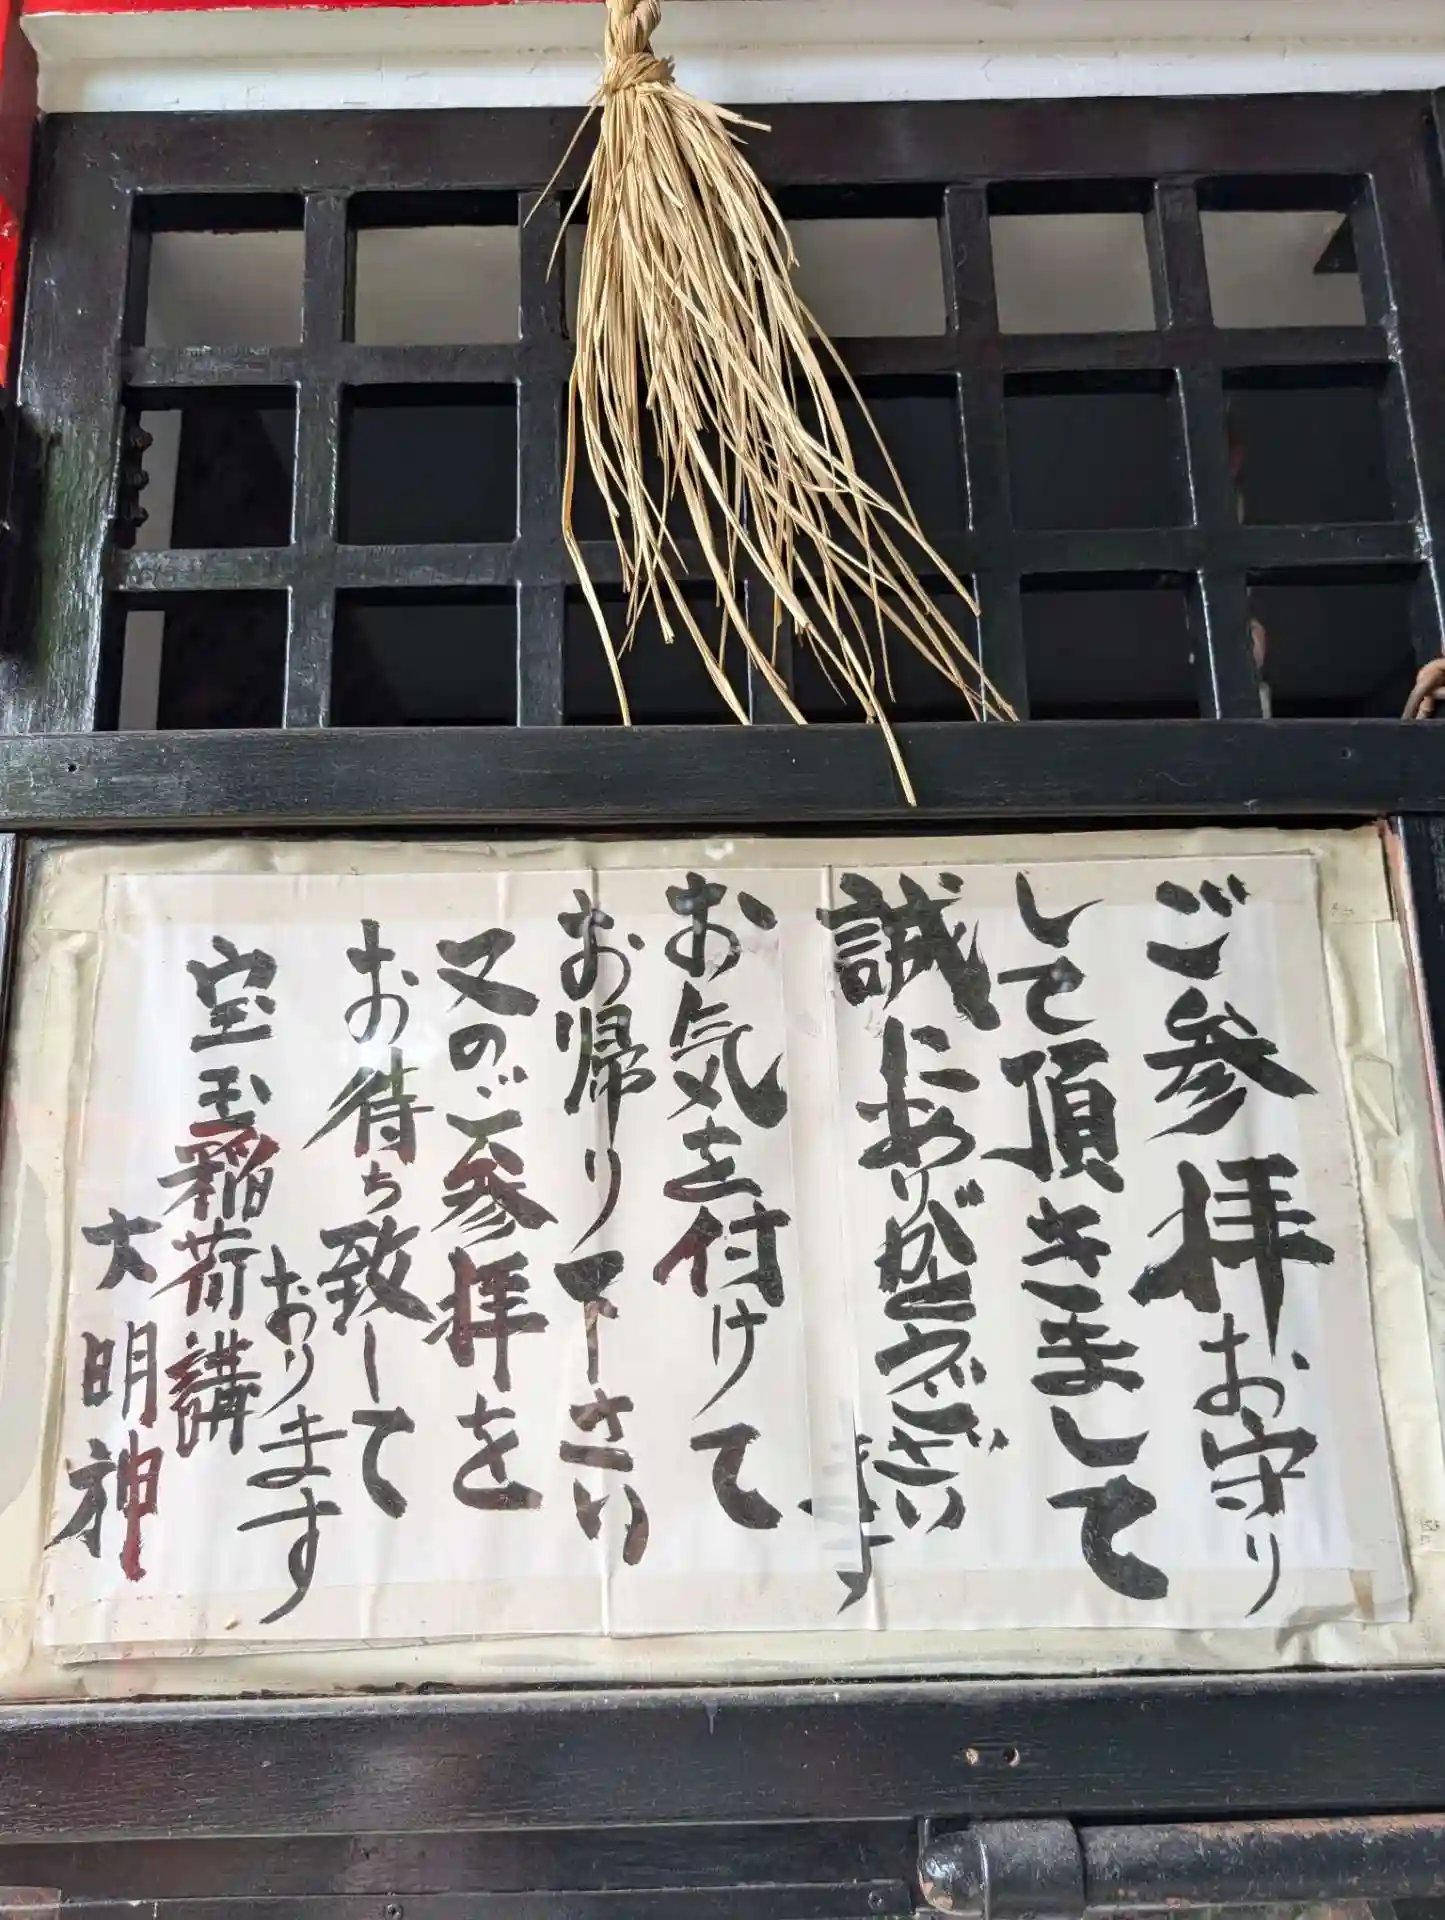 ご参拝お守り
して頂きまして
誠にありがとうござい
ます
お気を付けて
お帰り下さい
又のご参拝を
お待ち致して
おります
宝玉稲荷講
大明神